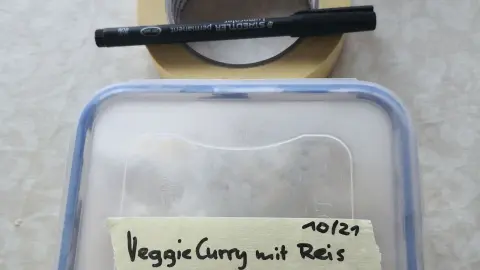 STAEDTLER permanent
Lumocolor
10/21
VeggieCurry mit Reis